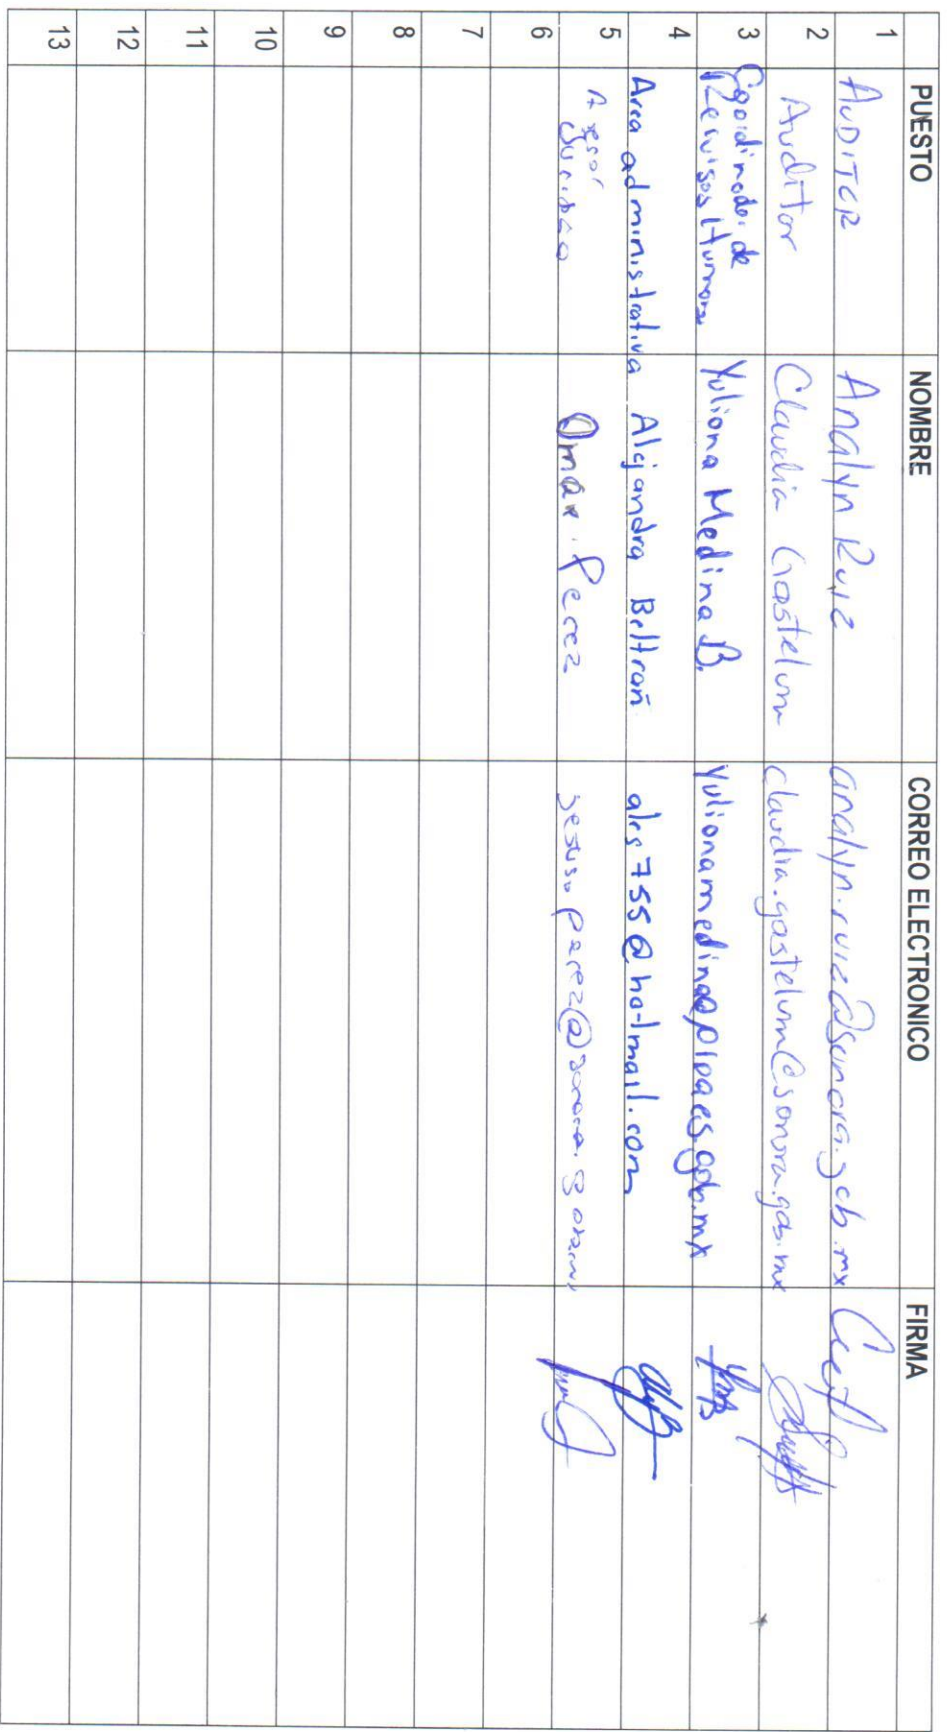 PUESTO NOMBRE CORREO ELECTRONICO FIRMA
1 AUDITOR Analyn Ruiz analyn.ruiz@sonora.gob.mx
2 Auditor Claudia Gastelum claudia.gastelum@sonora.gob.mx
3 Coordinador de
Recursos Humanos Yuliana Medina B. yulianamedina@pipaes.gob.mx
4 Area administrativa Alejandra Beltran ales755@hotmail.com
5 Asesor
Juridico Omar Perez jesuso.perez@sonora.gob.mx
6
7
8
9
10
11
12
13